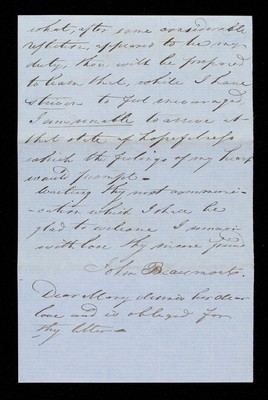 what, after some considerable
reflection, appeared to be my
duty, thou wilt be prepared
to learn that, while I have
striven to feel encouraged,
I am unable to arrive at
that state of hopefulness
which the feelings of my heart
would prompt—
Waiting thy next communi-
cation which I shall be
glad to welcome I remain
with love thy sincere friend
John Beaumont.
Dear Mary desires her dear
love and is obliged for
thy letter—